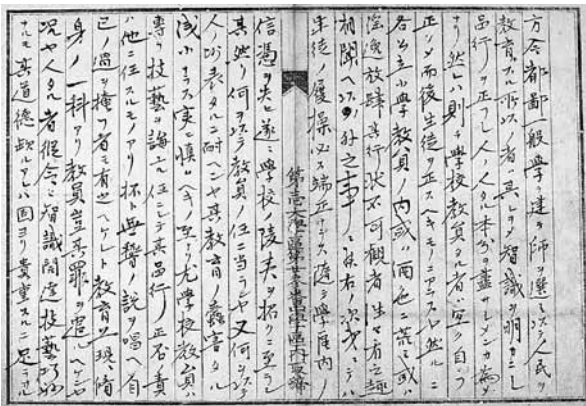 方今都鄙一般學ヲ建テ師ヲ選ミ以テ人民ヲ
教育スル所以ノ者ハ其レヲシテ智識ヲ明カニシ
品行ヲ正フシ人ノ人タル本分ヲ盡サシメンカ為メ
ナリ然レハ則チ學校教員タル者ハ宜ク自ラ
正シメ而後生徒ヲ正スヘキモノニアラスヤ然ルニ
各公立小學教員ノ内或ハ酒色ニ荒ミ或ハ
淫逸放肆其行状不可観者往々有之趣
相聞ヘ以ノ外之事ニ候右ノ次第ニテハ
生徒ノ履操必ス端正ナラス随テ學區内ノ
第壱大學區第廿参番中學區内取締
信憑ヲ失ヒ遂ニ學校ノ陵夷ヲ招クニ至ラン
其然リ何ヲ以テ教員ノ任ニ当ランヤ又何ヲ以テ
人ノ師表タルニ耐ヘンヤ其教育ノ蠹害タル
浅小ナラス実ニ慎ムヘキノ至リ尤學校教員ハ
専ラ技藝ヲ誨ユルノ任ニシテ其品行ノ正否責
ハ他ニ任スルモノアリ抔ト無替ノ説ヲ唱ヘ自
己ノ過ヲ掩フ者モ有之ヘケレト教育ノ現ニ脩
身ノ一科アリ教員豈其罪ヲ遁ルヘケンヤ
况ヤ人タル者縦令ニ智識闊達技藝巧妙
ナルモ其道徳缺ルアレハ固ヨリ貴重スルニ足ラサル